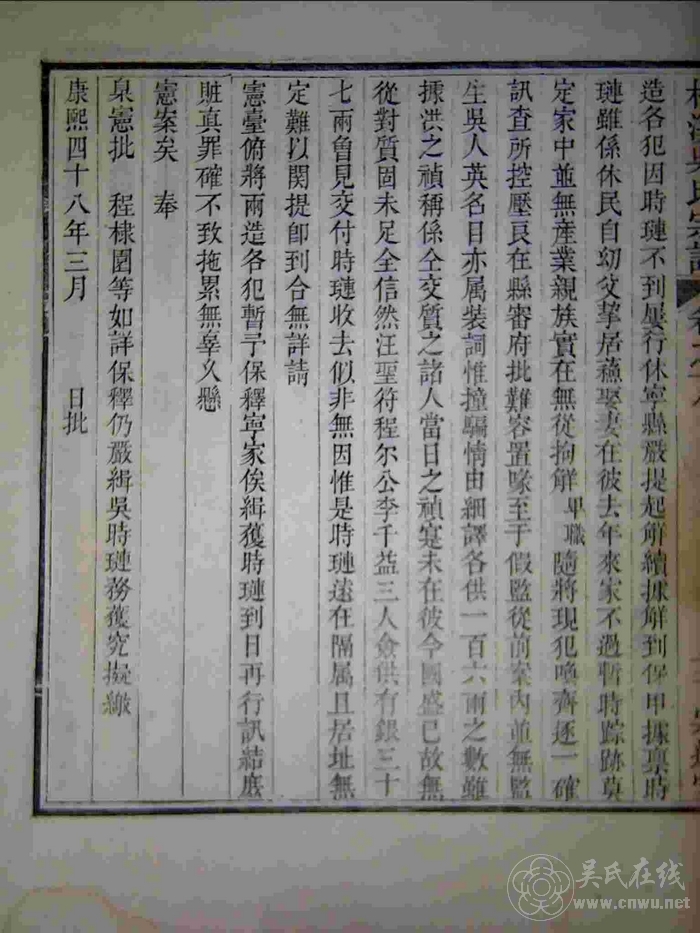 造各犯因時璉不到屢行休寧縣嚴提起解續據解到保甲據稟時
璉雖係休民自幼父挈居蘓娶妻在彼去年來家不過暫時踪跡莫
定家中並無産業親族實在無從拘解卑職隨將現犯喚齊逐一確
訊查所控壓良在縣審府批難容置喙至于假監從前案內並無監
生吳人英名目亦属装詞惟撞騙情由細譯各供一百六兩之數雖
據洪之禎稱係仝交質之諸人當日之禎寔未在彼今國盛已故無
從對質固未足全信然汪聖符程尔公李千益三人僉供有銀三十
七兩曾見交付時璉收去似非無因惟是時璉遠在隔属且居址無
定難以関提卽到合無詳請
憲臺俯將兩造各犯暫予保釋寧家俟緝獲時璉到日再行訊結庶
賍真罪確不致拖累無辜久懸
憲案矣 奉
臬憲批 程棣園等如詳保釋仍嚴緝吳時璉務獲究擬繳
康熙四十八年三月 日批
吴氏在线
www.cnwu.net